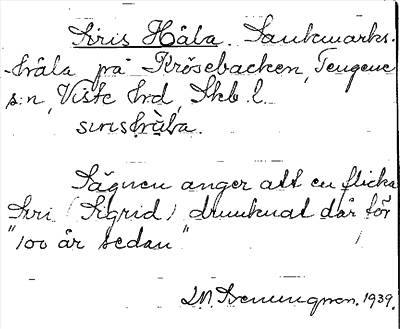 Siris Håla. Sankmarks-
håla på Krösebacken, Tengene
s:n, Viste hrd, Skb. l.
sirishåla.
Sägnen anger att en flicka
Siri (Sigrid) drunknat där för
"100 år sedan"
1939.